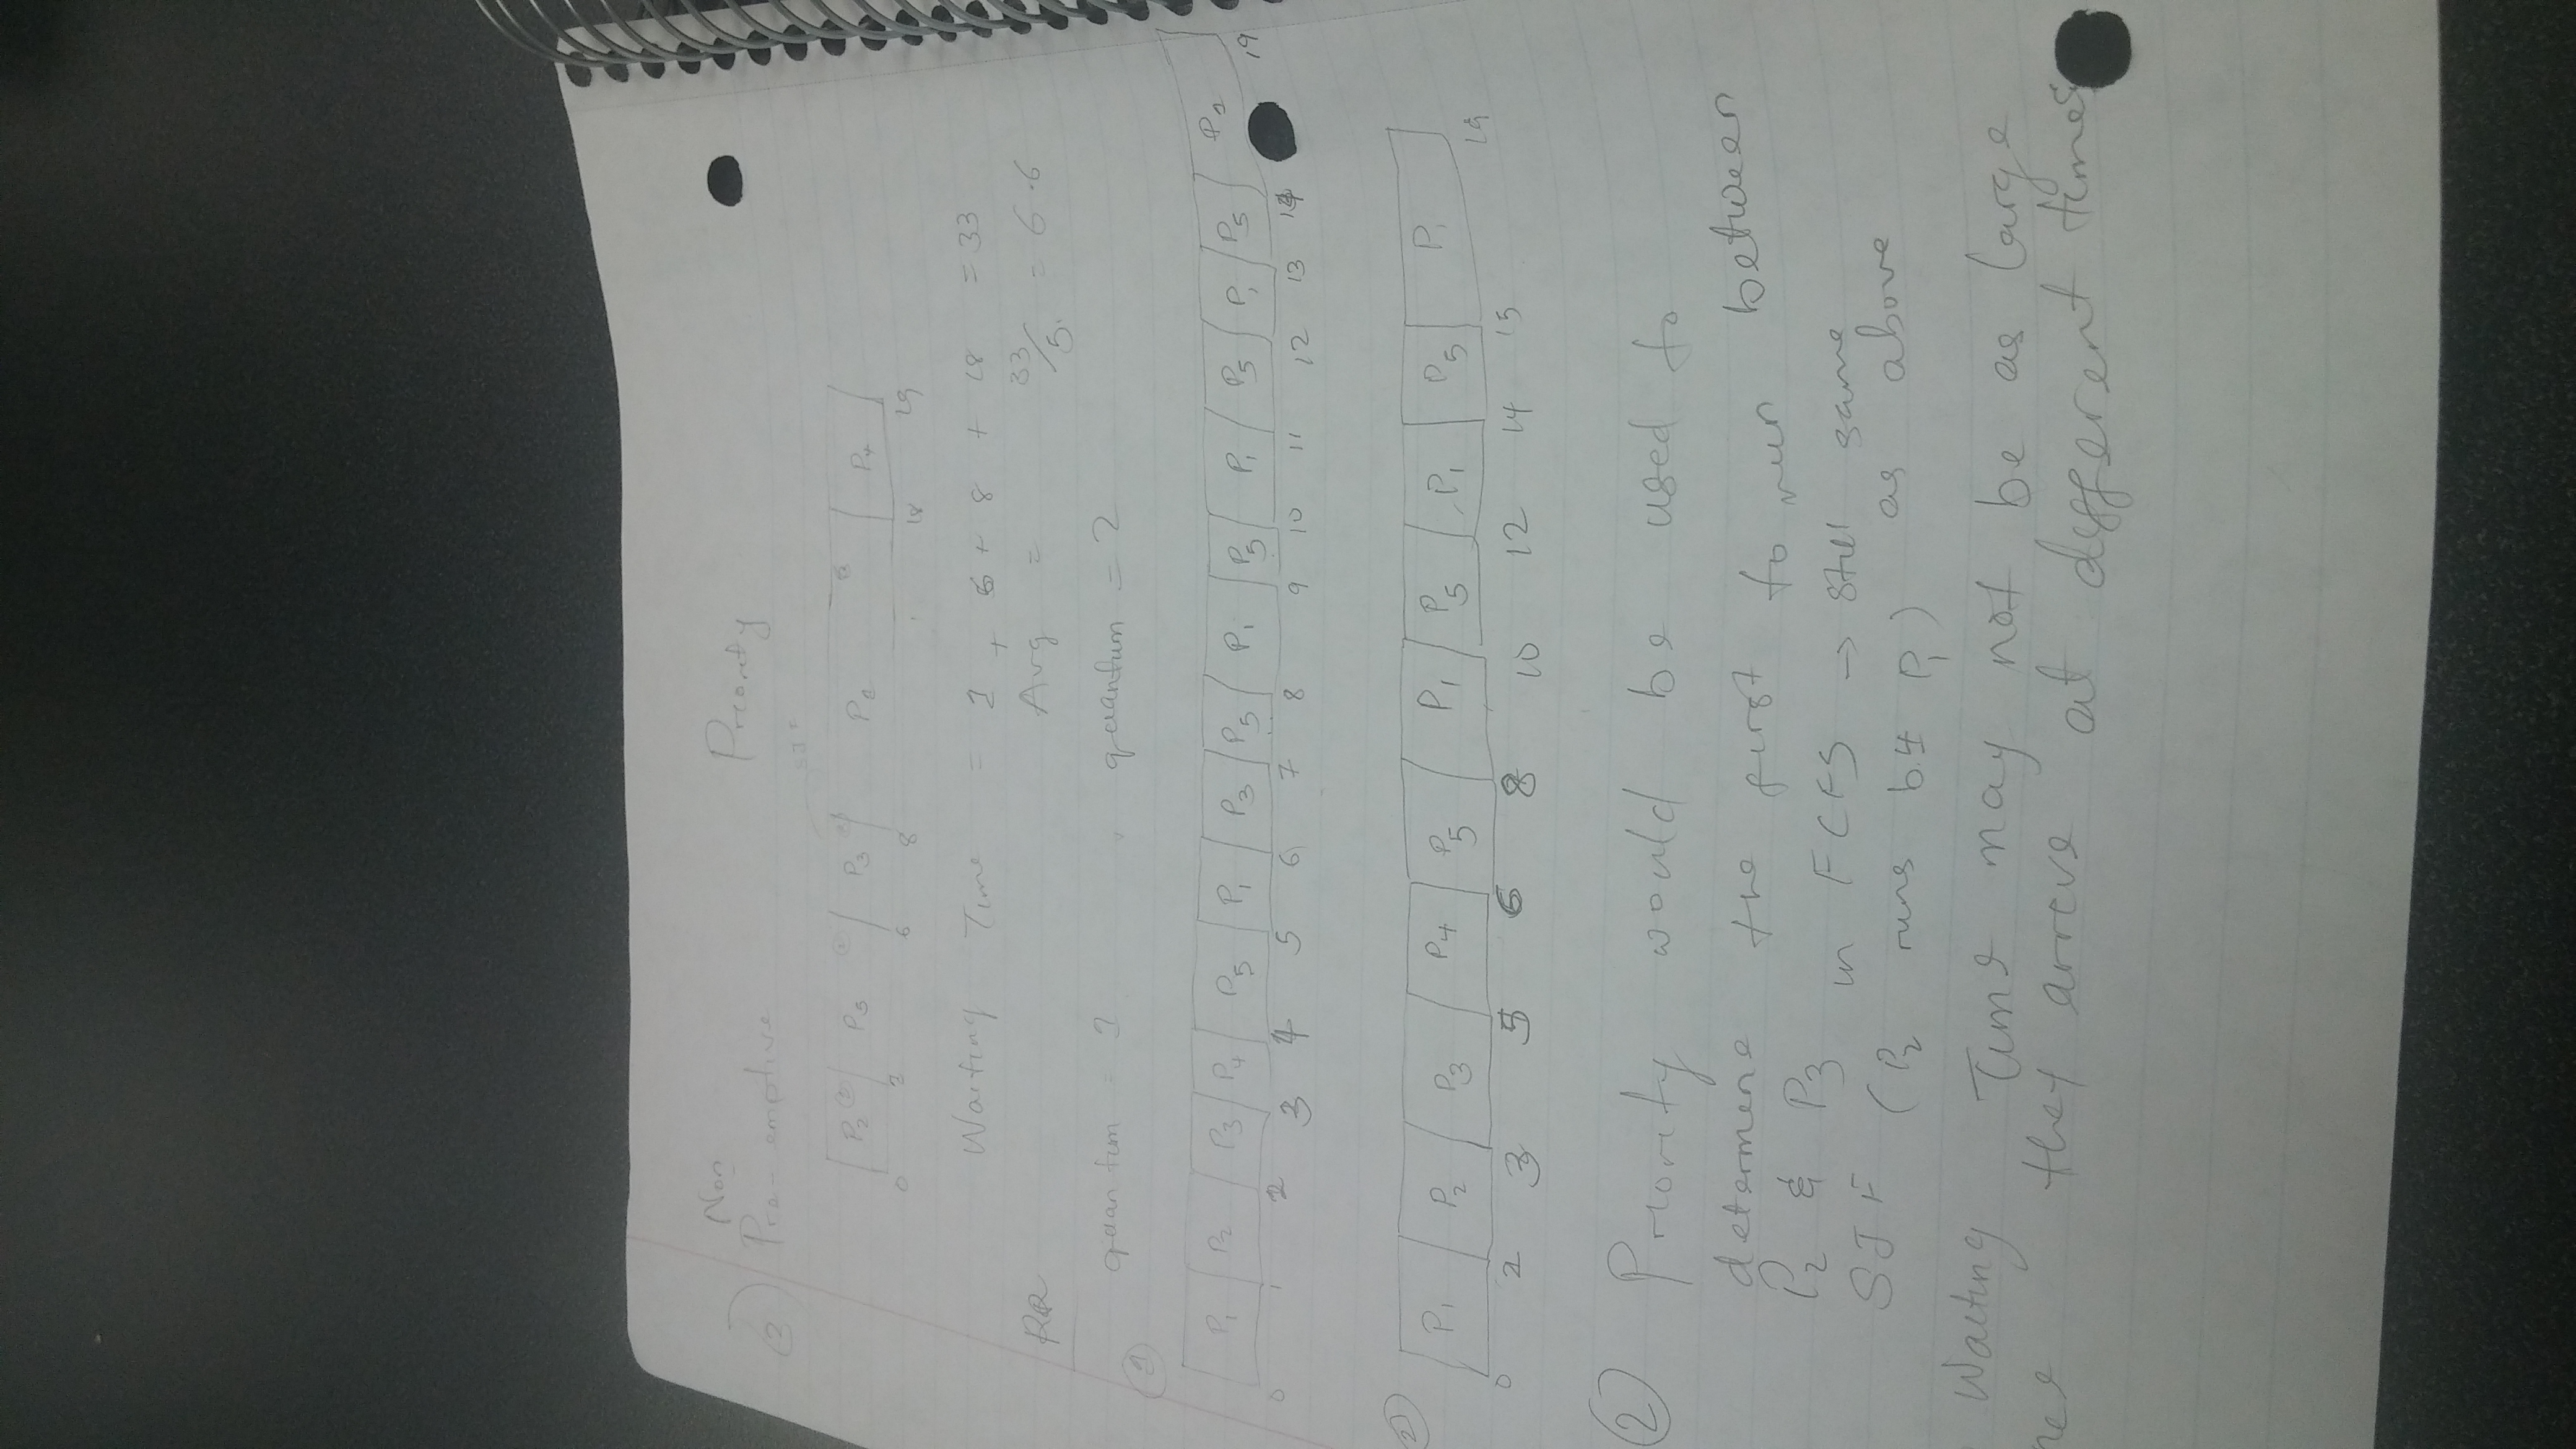 Non
② Pre-emptive Priority
SJF
P2 P5 P3 P1 P4
0 2 6 8 18 19
Waiting Time = 1 + 6 + 8 + 18 = 33
RR Avg = 33/5 = 6.6
quantum = 1 quantum = 2
①
P1 P2 P3 P4 P5 P1 P3 P5 P1 P5 P1 P5 P1 P5 P1
0 1 2 3 4 5 6 7 8 9 10 11 12 13 14 19
②
P1 P2 P3 P4 P5 P1 P5 P1 P5 P1
0 2 3 5 6 8 10 12 14 15 19
② Priority would be used to
determine the first to run between
P2 & P3 in FCFS → still same
SJF (P2 runs b4 P1) as above
Waiting Time may not be as large
they arrive at different times